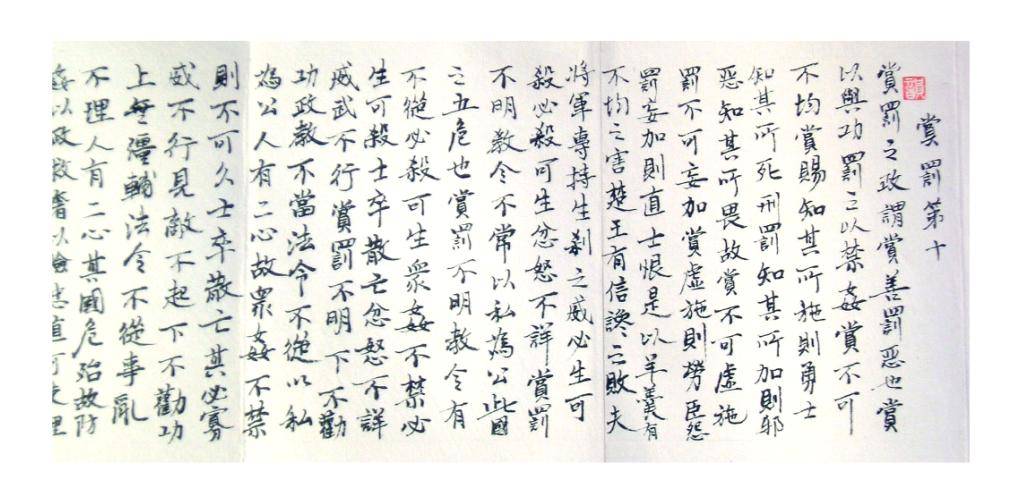 賞罰第十
賞罰之政謂賞善罰惡也賞
以與功罰之以禁姦賞不可
不均賞賜知其所施則勇士
知其所死刑罰知其所加則邪
惡知其所畏故賞不可虛施
罰不可妄加賞虛施則勞臣怨
罰妄加則直士恨是以羊羹有
不均之害楚王有信讒之敗夫
將軍專持生刹之威必生可
殺必殺可生忿怒不詳賞罰
不明教令不常以私為公此國
之五危也賞罰不明教令有
不從必殺可生衆姦不禁必
生可殺士卒散亡忿怒不詳
威武不行賞罰不明下不勸
功政教不當法令不從以私
為公人有二心故衆姦不禁
則不可久士卒散亡其必寡
威不行見敵不起下不勸功
上無彊輔法令不從事亂
不理人有二心其國危殆故防
姦以政救奢以儉忠直可使理